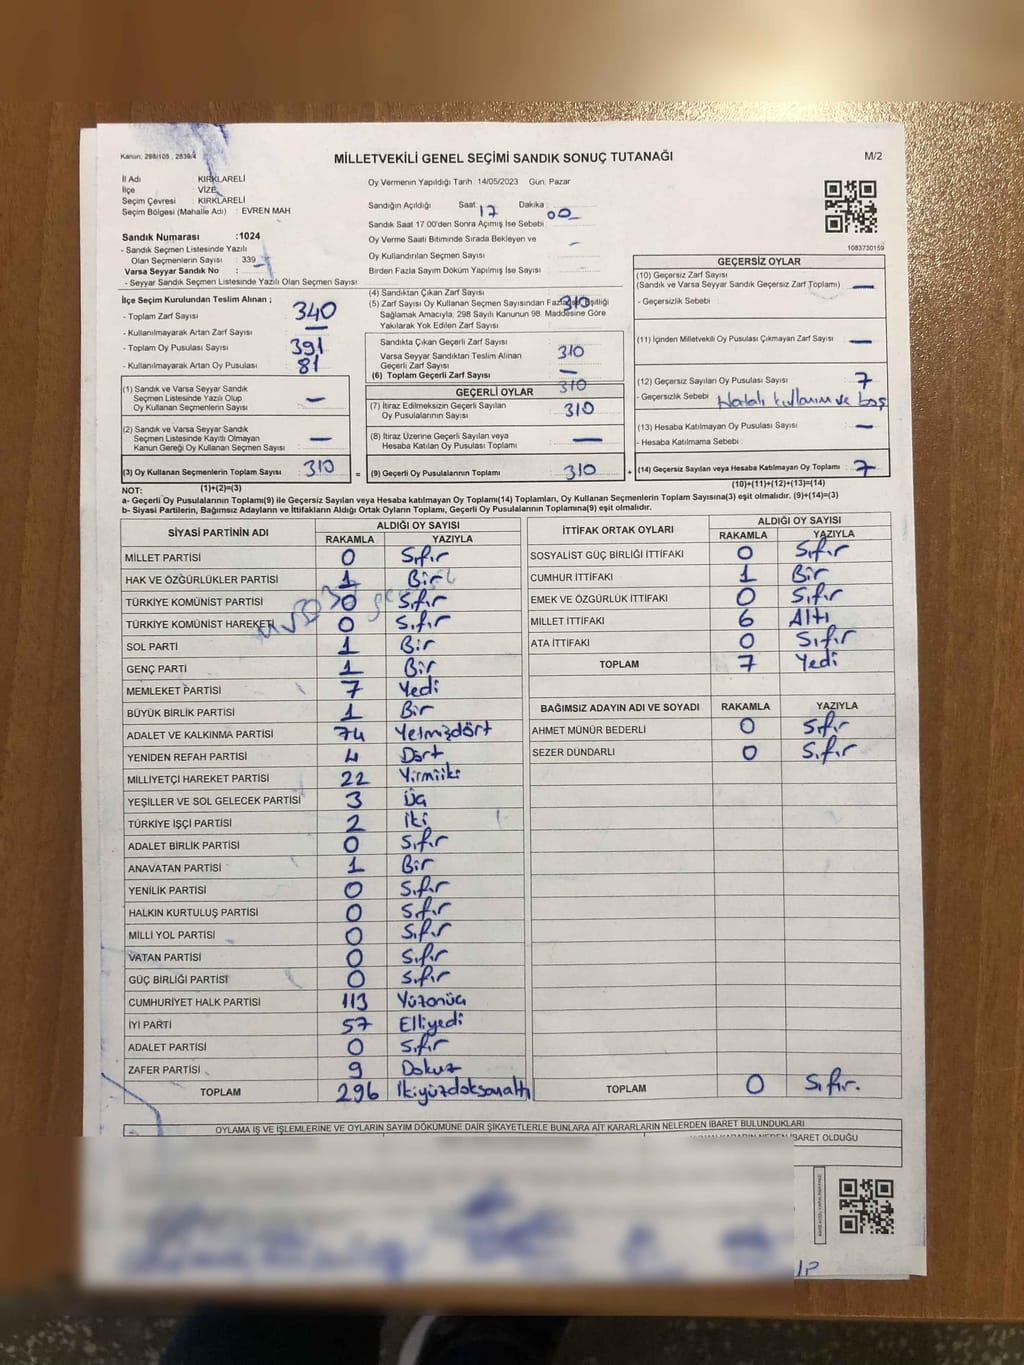 Kanun; 298/105 , 2839/4
MİLLETVEKİLİ GENEL SEÇİMİ SANDIK SONUÇ TUTANAĞI
M/2
İl Adı KIRKLARELİ
İlçe VİZE
Seçim Çevresi : KIRKLARELİ
Seçim Bölgesi (Mahalle Adı) : EVREN MAH
Sandık Numarası :1024
- Sandık Seçmen Listesinde Yazılı
Olan Seçmenlerin Sayısı : 339
Varsa Seyyar Sandık No : -
- Seyyar Sandık Seçmen Listesinde Yazılı Olan Seçmen Sayısı:
Oy Vermenin Yapıldığı Tarih :14/05/2023 Gün: Pazar
Sandığın Açıldığı Saat: 17 Dakika: 00
Sandık Saat 17:00'den Sonra Açımış İse Sebebi
Oy Verme Saati Bitiminde Sırada Bekleyen ve
Oy Kullandırılan Seçmen Sayısı -
Birden Fazla Sayım Döküm Yapılmış İse Sayısı
1083730159
İlçe Seçim Kurulundan Teslim Alınan ;
- Toplam Zarf Sayısı 340
- Kullanılmayarak Artan Zarf Sayısı —
- Toplam Oy Pusulası Sayısı 391
- Kullanılmayarak Artan Oy Pusulası 81
(1) Sandık ve Varsa Seyyar Sandık
Seçmen Listesinde Yazılı Olup
Oy Kullanan Seçmenlerin Sayısı —
(2) Sandık ve Varsa Seyyar Sandık
Seçmen Listesinde Kayıtlı Olmayan
Kanun Gereği Oy Kullanan Seçmen Sayısı —
(3) Oy Kullanan Seçmenlerin Toplam Sayısı 310
(1)+(2)=(3)
(4) Sandıktan Çıkan Zarf Sayısı 310
(5) Zarf Sayısı Oy Kullanan Seçmen Sayısından Fazlaysa, Eşitliği
Sağlamak Amacıyla, 298 Sayılı Kanunun 98. Maddesine Göre
Yakılarak Yok Edilen Zarf Sayısı
Sandıkta Çıkan Geçerli Zarf Sayısı 310
Varsa Seyyar Sandıktan Teslim Alınan
Geçerli Zarf Sayısı —
(6) Toplam Geçerli Zarf Sayısı 310
GEÇERLİ OYLAR
(7) İtiraz Edilmeksizin Geçerli Sayılan
Oy Pusulalarının Sayısı 310
(8) İtiraz Üzerine Geçerli Sayılan veya
Hesaba Katılan Oy Pusulası Toplamı —
= (9) Geçerli Oy Pusulalarının Toplamı 310
GEÇERSİZ OYLAR
(10) Geçersiz Zarf Sayısı
(Sandık ve Varsa Seyyar Sandık Geçersiz Zarf Toplamı) —
- Geçersizlik Sebebi :
(11) İçinden Milletvekili Oy Pusulası Çıkmayan Zarf Sayısı —
(12) Geçersiz Sayılan Oy Pusulası Sayısı 7
- Geçersizlik Sebebi Hatalı kullanım ve boş
(13) Hesaba Katılmayan Oy Pusulası Sayısı —
- Hesaba Katılmama Sebebi :
+ (14) Geçersiz Sayılan veya Hesaba Katılmayan Oy Toplamı 7
(10)+(11)+(12)+(13)=(14)
NOT:
a- Geçerli Oy Pusulalarının Toplamı(9) ile Geçersiz Sayılan veya Hesaba katılmayan Oy Toplamı(14) Toplamları, Oy Kullanan Seçmenlerin Toplam Sayısına(3) eşit olmalıdır. (9)+(14)=(3)
b- Siyasi Partilerin, Bağımsız Adayların ve İttifakların Aldığı Ortak Oyların Toplamı, Geçerli Oy Pusulalarının Toplamına(9) eşit olmalıdır.
SİYASİ PARTİNİN ADI
ALDIĞI OY SAYISI
RAKAMLA YAZIYLA
MİLLET PARTİSİ 0 Sıfır
HAK VE ÖZGÜRLÜKLER PARTİSİ 1 Bir
TÜRKİYE KOMÜNİST PARTİSİ 0 Sıfır
TÜRKİYE KOMÜNİST HAREKETİ 0 Sıfır
SOL PARTİ 1 Bir
GENÇ PARTİ 1 Bir
MEMLEKET PARTİSİ 7 Yedi
BÜYÜK BİRLİK PARTİSİ 1 Bir
ADALET VE KALKINMA PARTİSİ 74 Yetmişdört
YENİDEN REFAH PARTİSİ 4 Dört
MİLLİYETÇİ HAREKET PARTİSİ 22 Yirmiiki
YEŞİLLER VE SOL GELECEK PARTİSİ 3 Üç
TÜRKİYE İŞÇİ PARTİSİ 2 İki
ADALET BİRLİK PARTİSİ 0 Sıfır
ANAVATAN PARTİSİ 1 Bir
YENİLİK PARTİSİ 0 Sıfır
HALKIN KURTULUŞ PARTİSİ 0 Sıfır
MİLLİ YOL PARTİSİ 0 Sıfır
VATAN PARTİSİ 0 Sıfır
GÜÇ BİRLİĞİ PARTİSİ 0 Sıfır
CUMHURİYET HALK PARTİSİ 113 Yüzonüç
İYİ PARTİ 57 Elliyedi
ADALET PARTİSİ 0 Sıfır
ZAFER PARTİSİ 9 Dokuz
TOPLAM 296 İkiyüzdoksanaltı
İTTİFAK ORTAK OYLARI
ALDIĞI OY SAYISI
RAKAMLA YAZIYLA
SOSYALİST GÜÇ BİRLİĞİ İTTİFAKI 0 Sıfır
CUMHUR İTTİFAKI 1 Bir
EMEK VE ÖZGÜRLÜK İTTİFAKI 0 Sıfır
MİLLET İTTİFAKI 6 Altı
ATA İTTİFAKI 0 Sıfır
TOPLAM 7 Yedi
BAĞIMSIZ ADAYIN ADI VE SOYADI RAKAMLA YAZIYLA
AHMET MÜNÜR BEDERLİ 0 Sıfır
SEZER DÜNDARLI 0 Sıfır
TOPLAM 0 Sıfır.
OYLAMA İŞ VE İŞLEMLERİNE VE OYLARIN SAYIM DÖKÜMÜNE DAİR ŞİKAYETLERLE BUNLARA AİT KARARLARIN NELERDEN İBARET BULUNDUKLARI
İBARET OLDUĞU